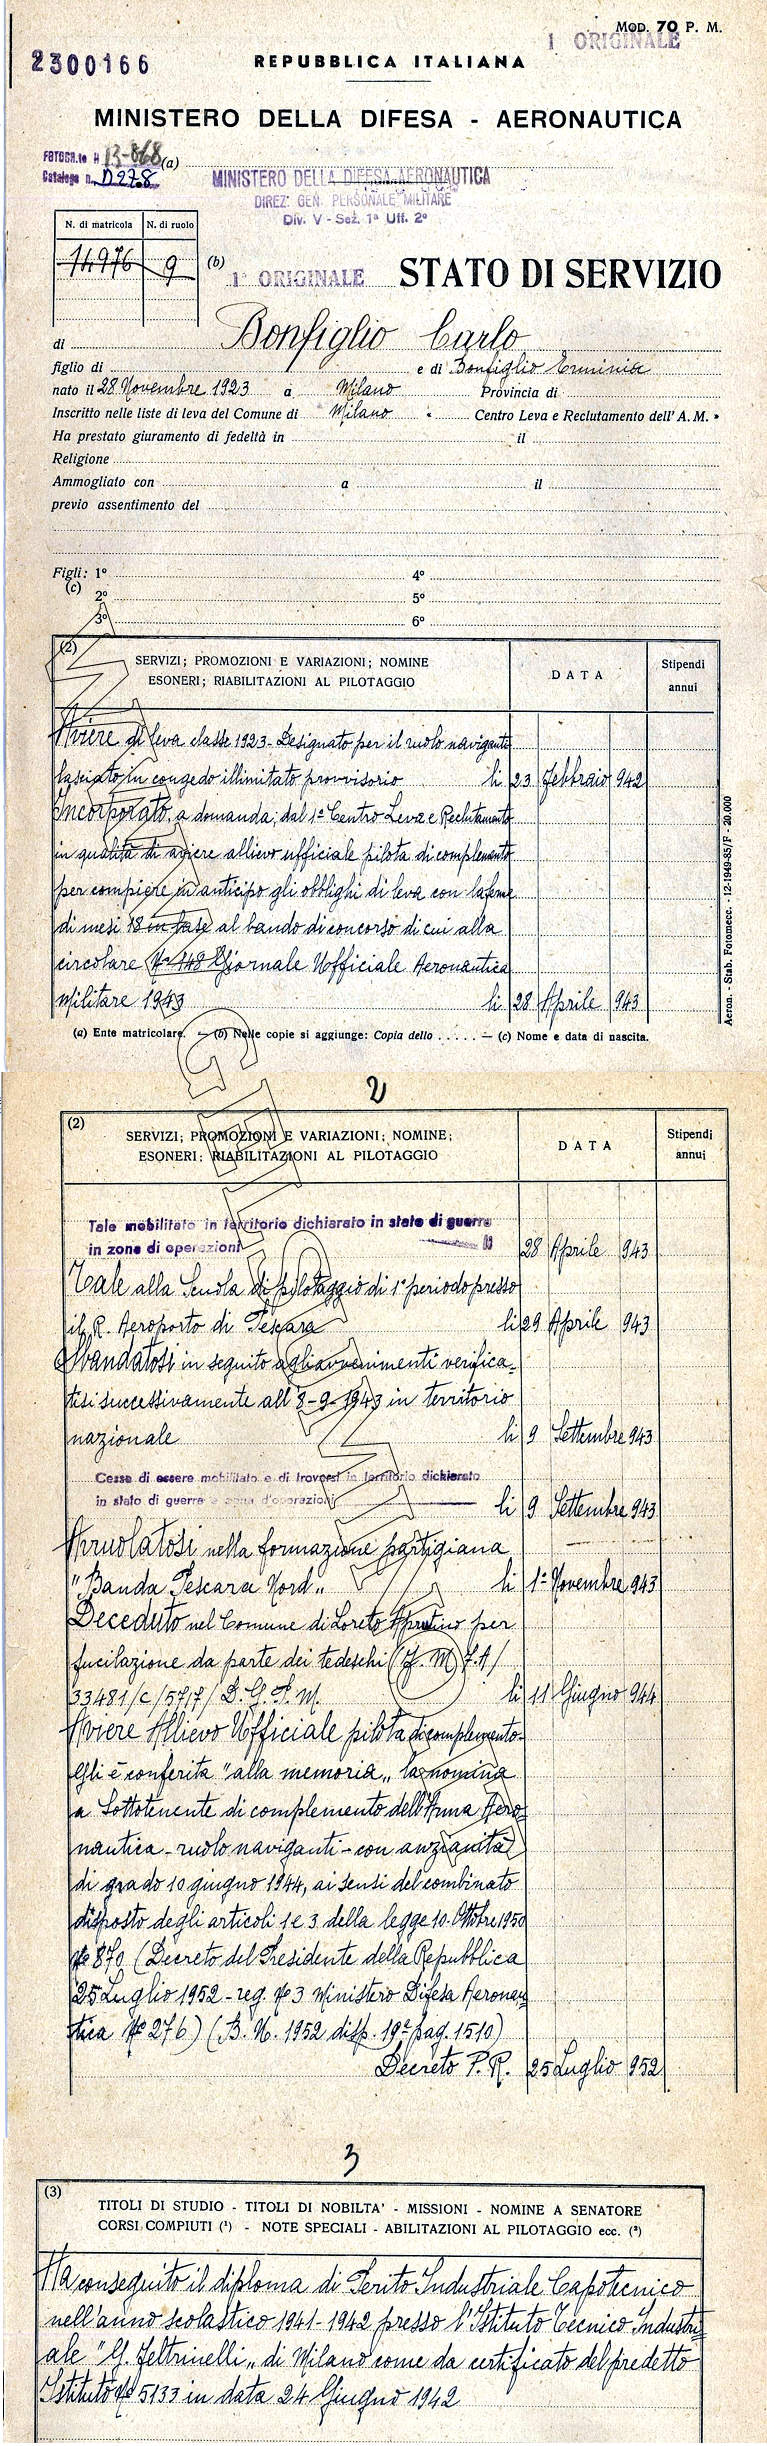 MOD. 70 P. M.
1 ORIGINALE
2300166
REPUBBLICA ITALIANA
MINISTERO DELLA DIFESA - AERONAUTICA
FOTOGR.to N 13-868 (a)
Catalogo n. D278
MINISTERO DELLA DIFESA AERONAUTICA
DIREZ. GEN. PERSONALE MILITARE
Div. V - Sez. 1ª Uff. 2°
N. di matricola N. di ruolo
14976 9
(b) 1° ORIGINALE STATO DI SERVIZIO
di Bonfiglio Carlo
figlio di e di Bonfiglio Erminia
nato il 28 Novembre 1923 a Milano Provincia di
Inscritto nelle liste di leva del Comune di Milano Centro Leva e Reclutamento dell'A. M.
Ha prestato giuramento di fedeltà in il
Religione
Ammogliato con a il
previo assentimento del
Figli: 1° 4°
(c) 2° 5°
3° 6°
(2) SERVIZI; PROMOZIONI E VARIAZIONI; NOMINE
ESONERI; RIABILITAZIONI AL PILOTAGGIO
DATA
Stipendi
annui
Aviere di leva classe 1923 - Designato per il ruolo naviganti
lasciato in congedo illimitato provvisorio li 23 Febbraio 942
Incorporato, a domanda, dal 1° Centro Leva e Reclutamento
in qualità di aviere allievo ufficiale pilota di complemento
per compiere in anticipo gli obblighi di leva con la ferma
di mesi 18 in base al bando di concorso di cui alla
circolare N° 148 Giornale Ufficiale Aeronautica
Militare 1943 li 28 Aprile 943
Aeron. - Stab. Fotomecc. - 12-1949-85/F - 20.000
(a) Ente matricolare. — (b) Nelle copie si aggiunge: Copia dello . . . . . — (c) Nome e data di nascita.
2
(2) SERVIZI; PROMOZIONI E VARIAZIONI; NOMINE;
ESONERI; RIABILITAZIONI AL PILOTAGGIO
DATA
Stipendi
annui
Tale mobilitato in territorio dichiarato in stato di guerra
in zone di operazioni 28 Aprile 943
Tale alla Scuola di pilotaggio di 1° periodo presso
il R. Aeroporto di Pescara li 29 Aprile 943
Sbandatosi in seguito agli avvenimenti verifica=
tisi successivamente all'8-9-1943 in territorio
nazionale li 9 Settembre 943
Cessa di essere mobilitato e di trovarsi in territorio dichiarato
in stato di guerra e zona d'operazioni li 9 Settembre 943
Arruolatosi nella formazione partigiana
"Banda Pescara Nord" li 1° Novembre 943
Deceduto nel Comune di Loreto Aprutino per
fucilazione da parte dei tedeschi (F. M.
33481/C/5717/ D. G. P. M. li 11 Giugno 944
Aviere Allievo Ufficiale pilota di complemento
Gli è conferita "alla memoria" la nomina
a Sottotenente di complemento dell'Arma Aero
nautica - ruolo naviganti - con anzianità
di grado 10 giugno 1944, ai sensi del combinato
disposto degli articoli 1 e 3 della legge 10-Ottobre 1950
N° 870 (Decreto del Presidente della Repubblica
25 Luglio 1952 - reg. N° 3 Ministero Difesa Aeronau=
tica N° 276) (B. U. 1952 disp. 19ª pag. 1510)
Decreto P. R. 25 Luglio 952
3
(3)
TITOLI DI STUDIO - TITOLI DI NOBILTA' - MISSIONI - NOMINE A SENATORE
CORSI COMPIUTI (¹) - NOTE SPECIALI - ABILITAZIONI AL PILOTAGGIO ecc. (²)
Ha conseguito il diploma di Perito Industriale Capotecnico
nell'anno scolastico 1941-1942 presso l'Istituto Tecnico Industri=
ale "G. Feltrinelli" di Milano come da certificato del predetto
Istituto N° 5133 in data 24 Giugno 1942